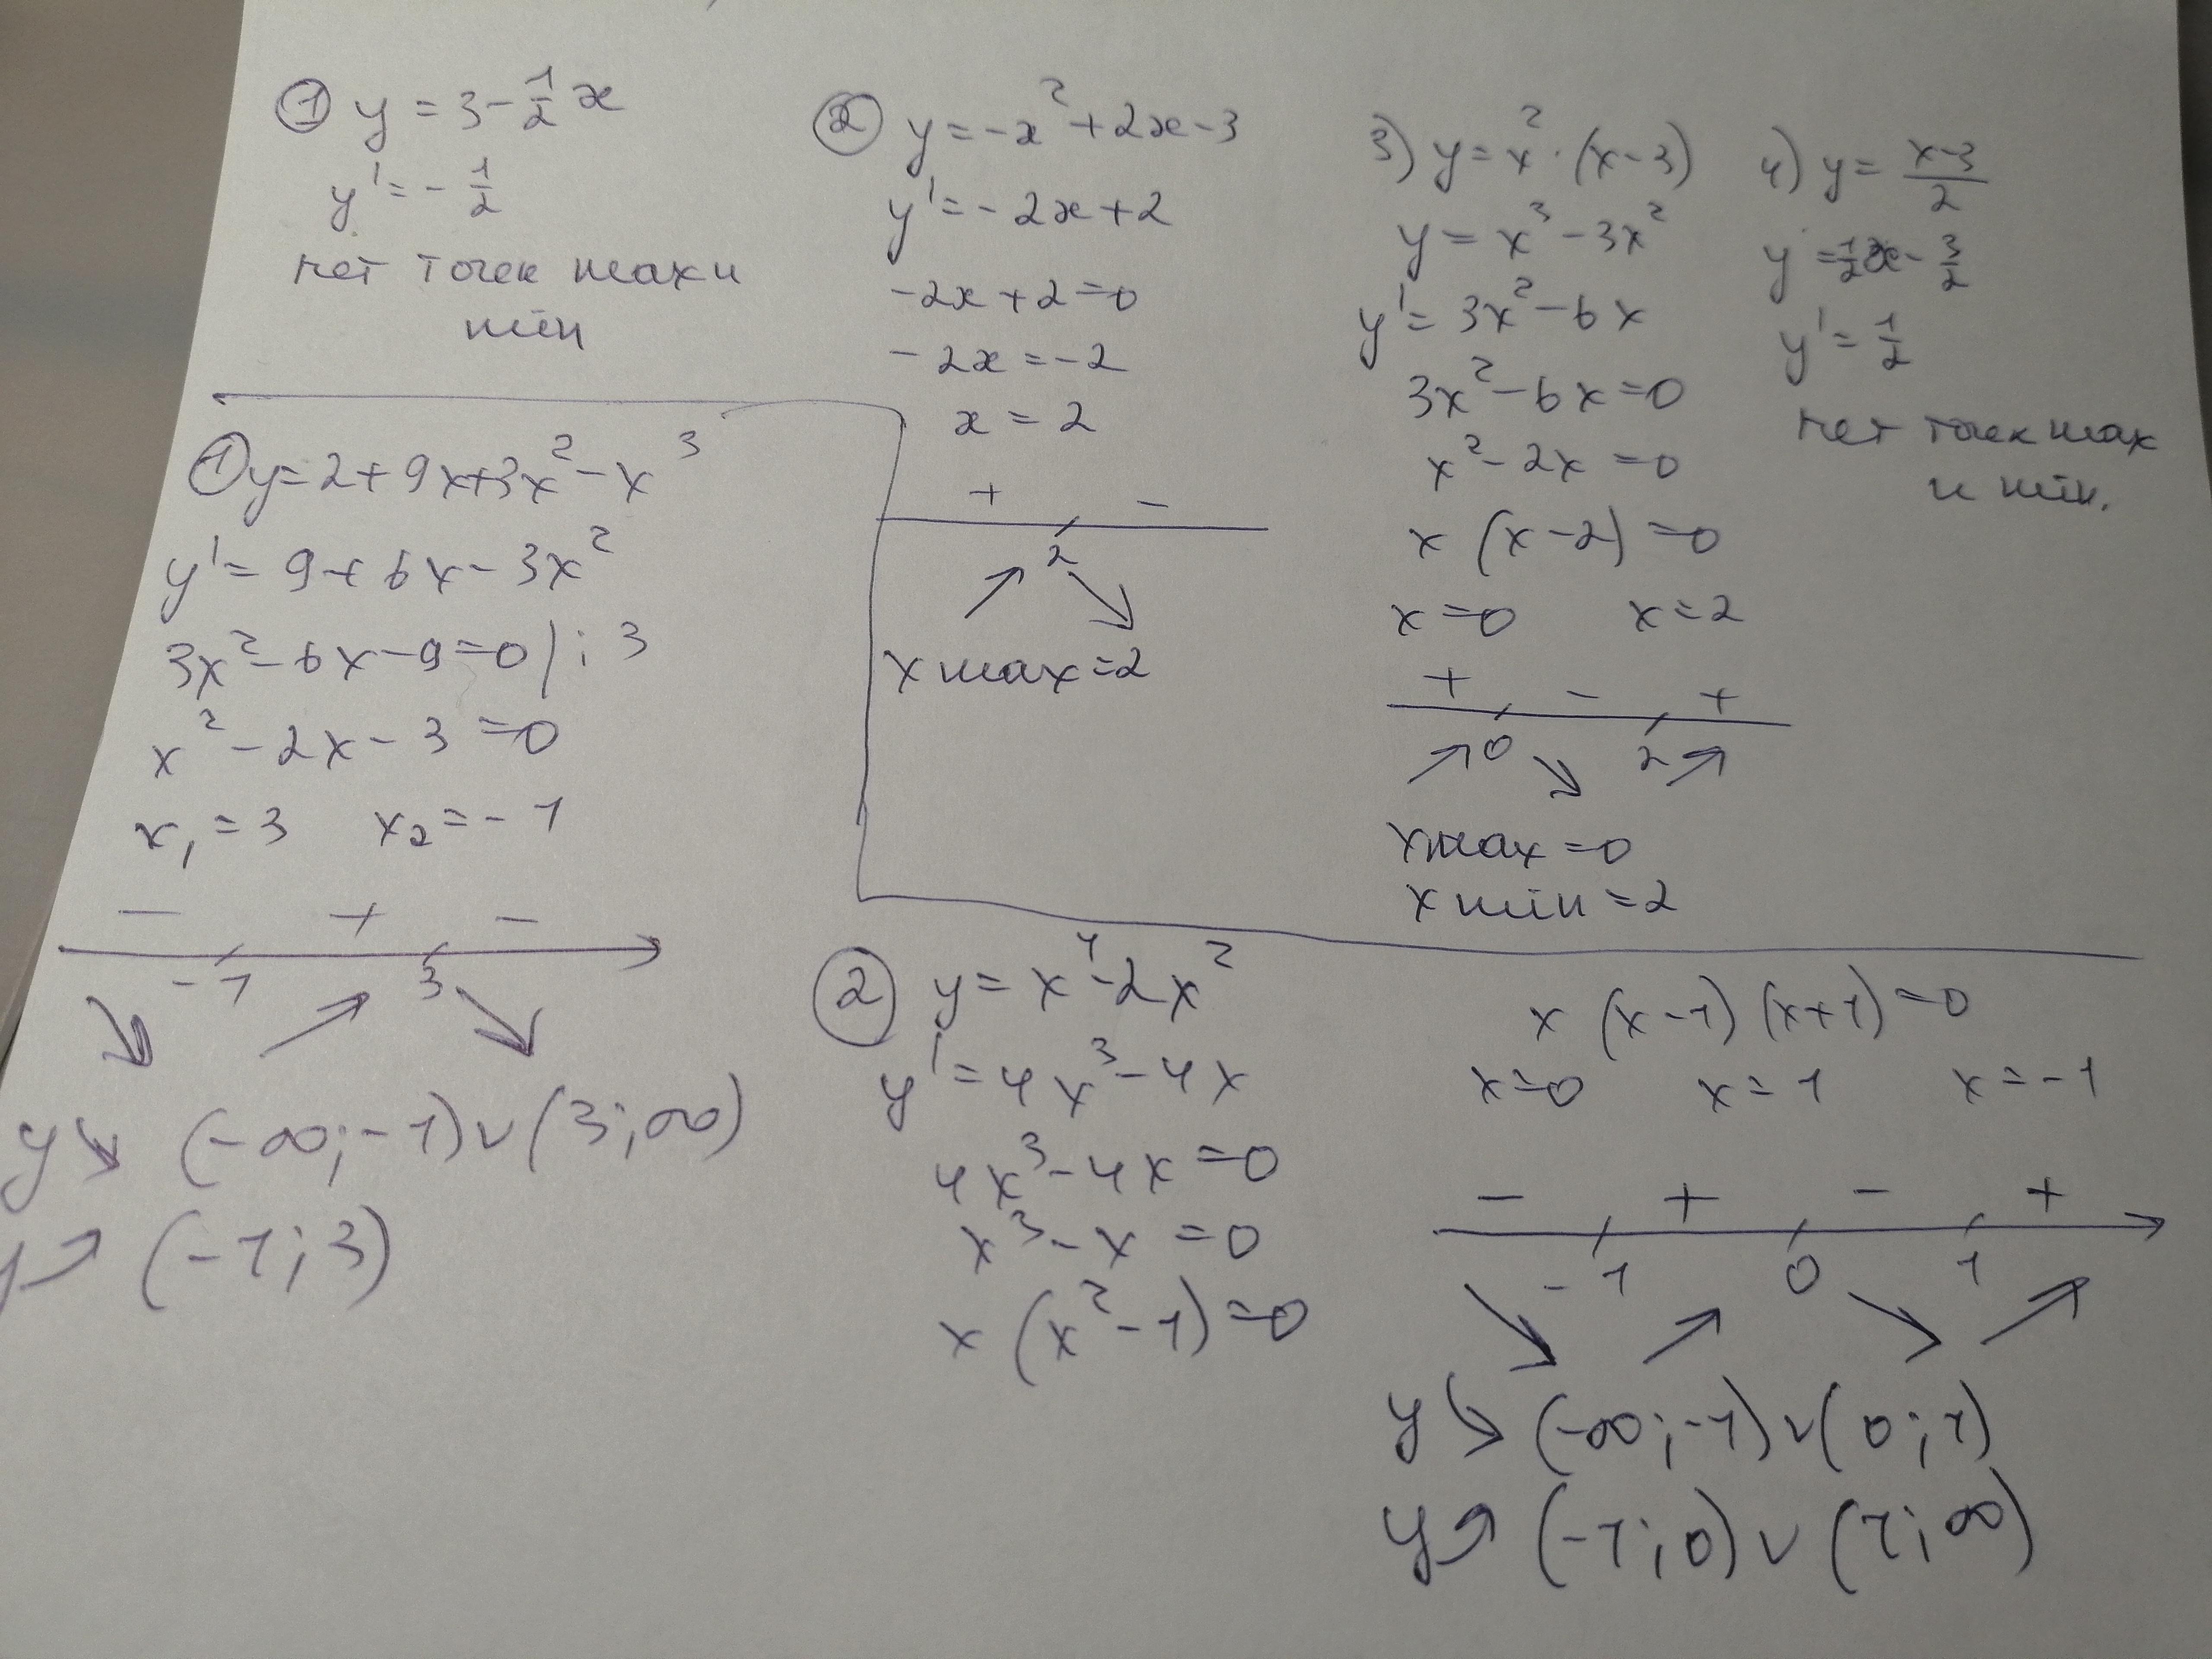 ① y = 3 - 1/2 x
y' = - 1/2
нет точек max и
min
② y = -x² + 2x - 3
y' = - 2x + 2
-2x + 2 = 0
- 2x = -2
x = 2
+ -
2
x max = 2
3) y = x² · (x - 3)
y = x³ - 3x²
y' = 3x² - 6x
3x² - 6x = 0
x² - 2x = 0
x (x - 2) = 0
x = 0 x = 2
+ - +
0 2
x max = 0
x min = 2
4) y = (x-3)/2
y = 1/2 x - 3/2
y' = 1/2
нет точек max
и min.
① y = 2 + 9x + 3x² - x³
y' = 9 + 6x - 3x²
3x² - 6x - 9 = 0 | : 3
x² - 2x - 3 = 0
x₁ = 3 x₂ = - 1
- + -
-1 3
y↘ (-∞; -1) ∪ (3; ∞)
y↗ (-1; 3)
② y = x⁴ - 2x²
y' = 4x³ - 4x
4x³ - 4x = 0
x³ - x = 0
x (x² - 1) = 0
x (x - 1) (x + 1) = 0
x = 0 x = 1 x = -1
- + - +
-1 0 1
y↘ (-∞; -1) ∪ (0; 1)
y↗ (-1; 0) ∪ (1; ∞)